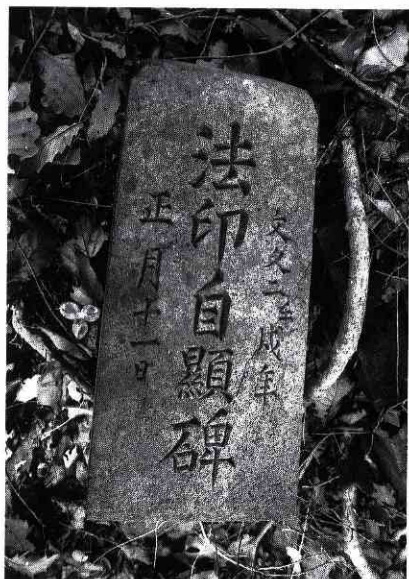 文久二壬戌年
法印自顯碑
正月十一日